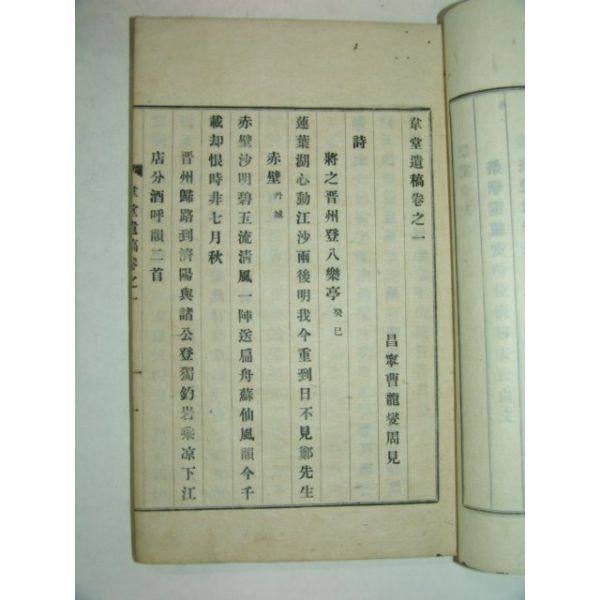 韋堂遺稿卷之一
昌寧曹龍燮周見
詩
將之晋州登八樂亭 癸巳
蓮葉湖心動江沙雨後明我今重到日不見鄭先生
赤壁 丹城
赤壁沙明碧玉流清風一陣送扁舟蘇仙風韻今千
載却恨時非七月秋
晋州歸路到濟陽與諸公登獨釣岩乘凉下江
店分酒呼韻二首
韋堂遺稿卷之一
一